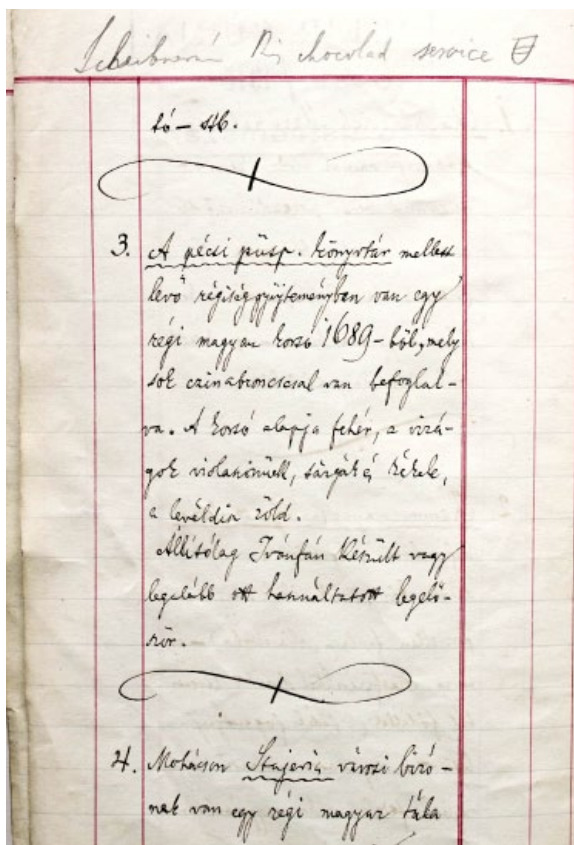 chocolad service
tó – stb.
3. A pécsi püsp. könyvtár mellett
levő régiséggyüjteményben van egy
régi magyar korsó 1689-ből, mely
sok czinabronccsal van befoglal-
va. A korsó alapja fehér, a virá-
gok violaszinüek, sárgák és kékek,
a levéldisz zöld.
Állítólag Ivánfán készült vagy
legalább ott használtatott legelő-
ször.
4. Mohácson városi biró-
nak van egy régi magyar tála